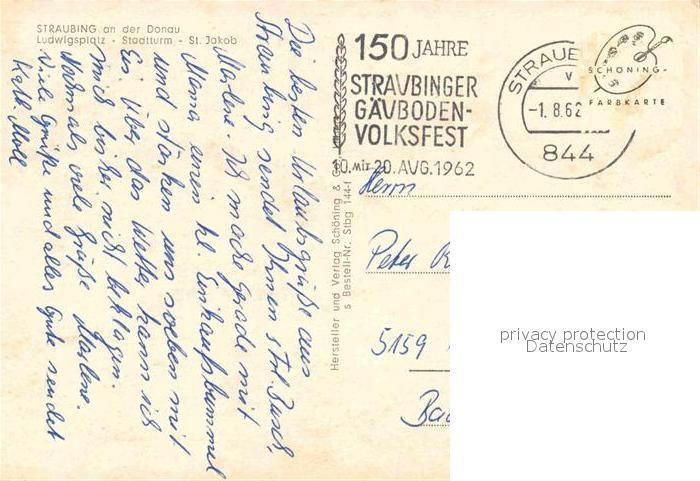 STRAUBING an der Donau
Ludwigsplatz - Stadtturm - St. Jakob
Die besten Urlaubsgrüße aus
Straubing sendet Ihnen
Marlene. Ich mache gerade mit
Mama einen kl. Einkaufsbummel
und stärken uns soeben mit
Eis. Über das Wetter kann ich
mich bisher nicht beklagen.
Nochmals viele Grüße Marlene.
Viele Grüße und alles Gute sendet
Kath. Moll
Hersteller und Verlag Schöning &
s Bestell-Nr. Stbg 144-
150 JAHRE
STRAUBINGER
GÄUBODEN-
VOLKSFEST
10. MIT 20. AUG. 1962
STRAUB
v
-1.8.62
844
SCHÖNING-
FARBKARTE
Herrn
Peter
5159
Ba
privacy protection
Datenschutz